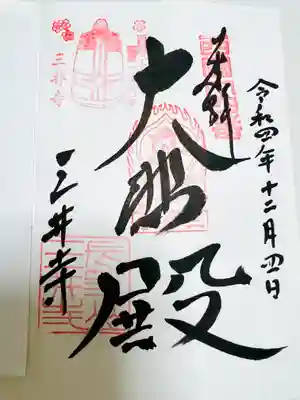 令和四年十二月四日
奉拝
大師殿
三井寺
三井寺